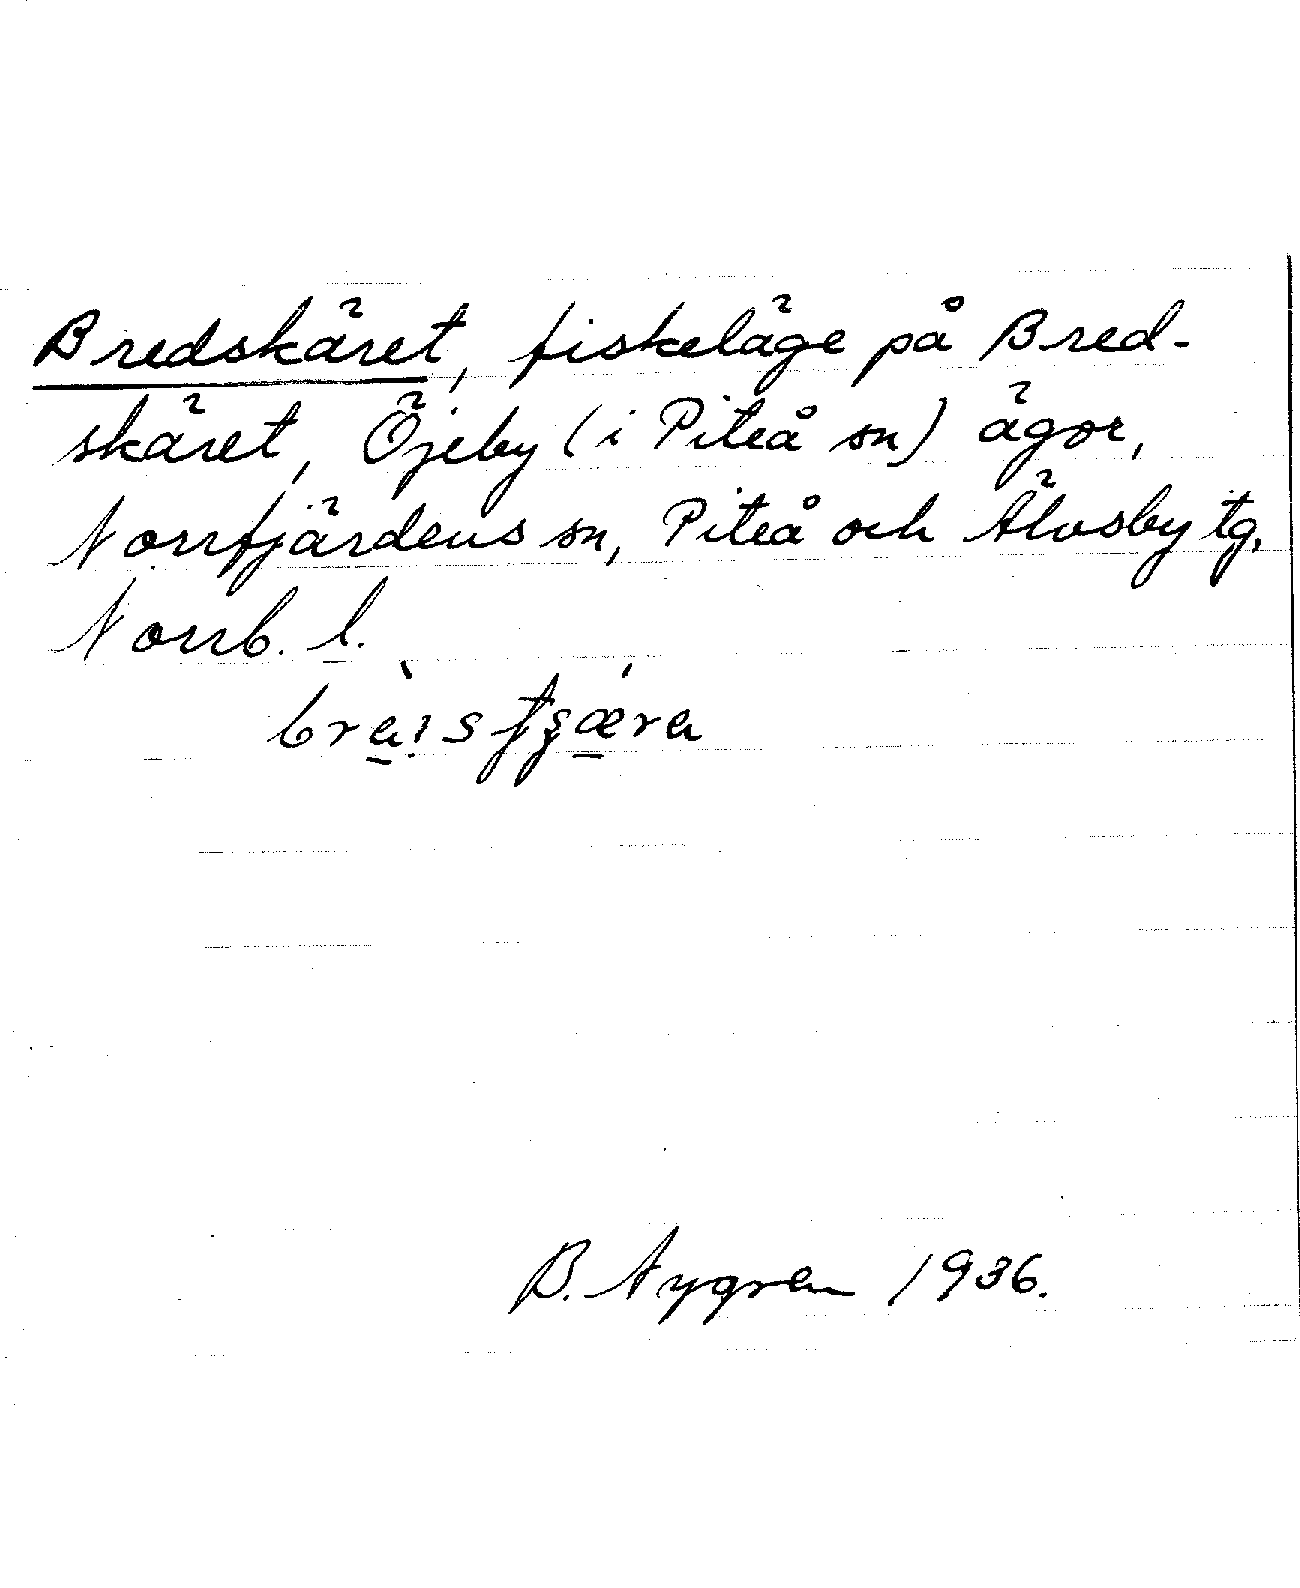 Bredskäret, fiskeläge på Bred-
skäret, Öjeby (i Piteå sn) ägor,
Norrfjärdens sn, Piteå och Älvsby tg.
Norrb. l.
B. Nygren 1936.